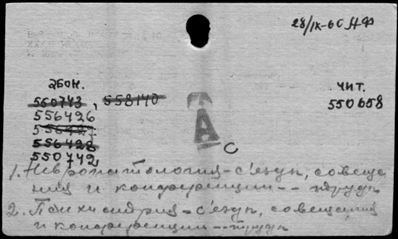 28/IX-66 НФ
абон.
550743, 558140
чит.
550658
556426
556427
556428
550742
А
С
1. Невропатология - съезды, совеща
ния и конференции -- труды
2. Психиатрия - съезды, совещания
и конференции -- труды